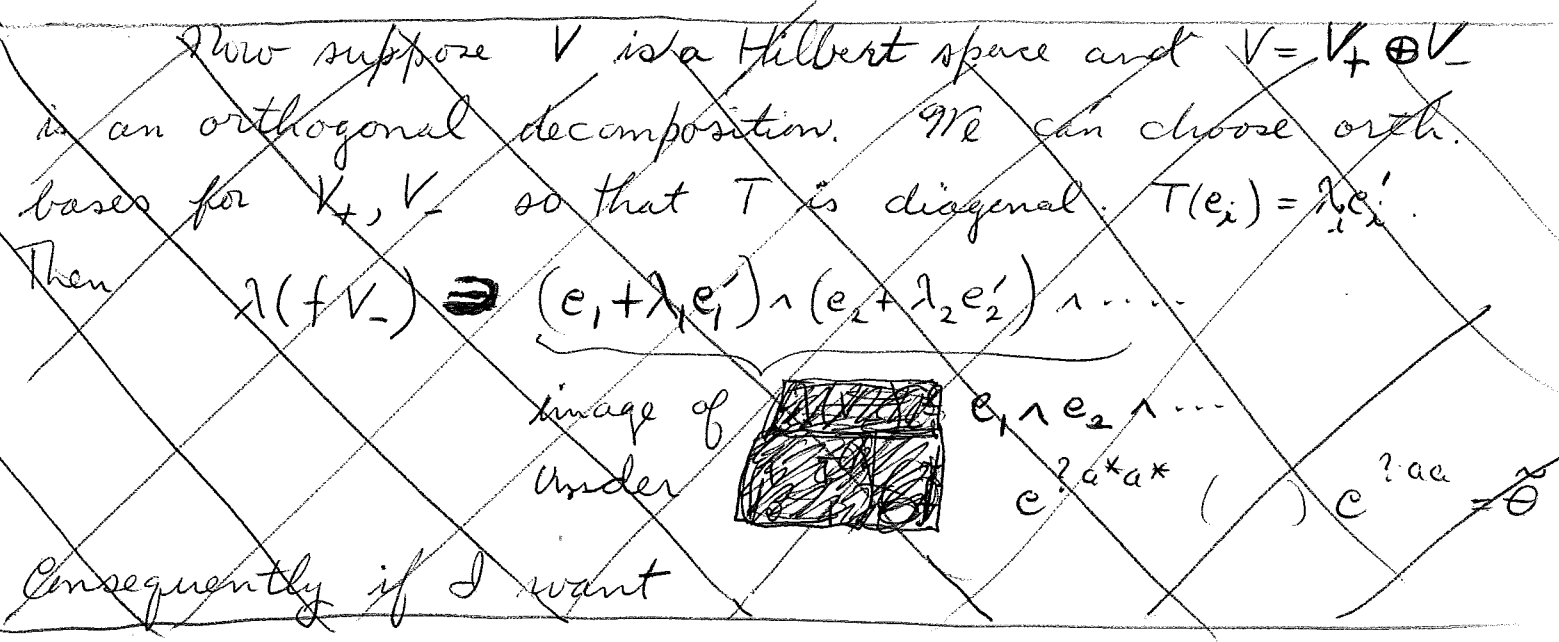 Now suppose V is a Hilbert space and V = V₊ ⊕ V₋
is an orthogonal decomposition. We can choose orth.
bases for V₊, V₋ so that T is diagonal. T(eᵢ) = λᵢeᵢ′.
Then
λ(f V₋) ∋ (e₁ + λ₁e₁′) ∧ (e₂ + λ₂e₂′) ∧ .....
image of e₁ ∧ e₂ ∧ ...
under e^{? a*a*} ( ) e^{? aa} = θ̃
Consequently if I want